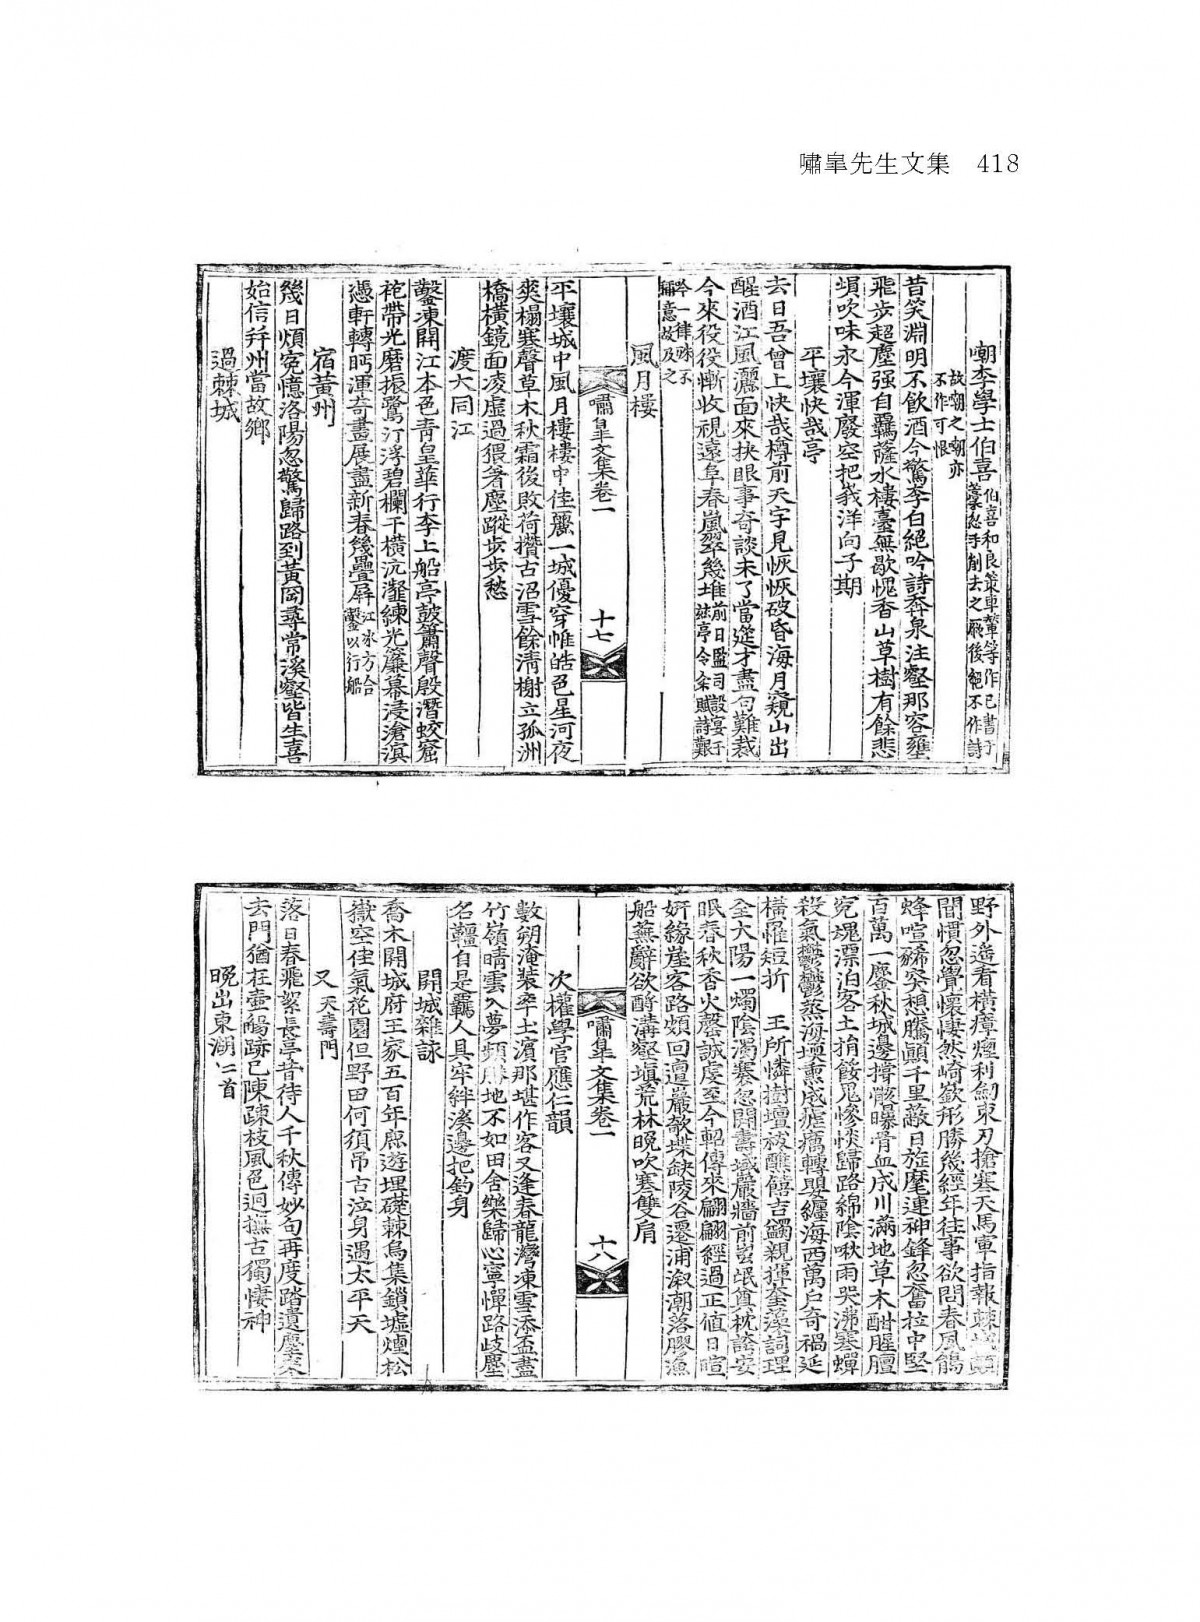 嘯皐先生文集 418
嘲李學士伯喜伯喜和良策車輦等作已書于蓋篆忽手削去之厥後絕不作詩
故嘲之嘲亦不作可恨
昔笑淵明不飮酒今驚李白絕吟詩奔泉注壑那容壅
飛步超塵强自羈薩水樓臺無歇愧香山草樹有餘悲
塤吹味永今渾廢空把峩洋向子期
平壤快哉亭
去日吾曾上快哉樽前天宇見恢恢破昏海月窺山出
醒酒江風灑面來抉眼事奇談未了當筵才盡句難裁
今來役役慚收視遠阜春嵐翠幾堆前日監司設宴于玆亭令余賦詩艱
吟一律昧不稱意故及之
風月樓
嘯皐文集卷一 十七
平壤城中風月樓樓中佳麗一城優穿帷皓色星河夜
爽榻寒聲草木秋霜後敗荷攢古沼雪餘淸榭立孤洲
橋橫鏡面凌虛過猥著塵蹤步步愁
渡大同江
鑿凍開江本色靑皇華行李上船亭鼓簫聲殷潛蛟窟
袍帶光磨振鷺汀浮碧欄干橫沆瀣練光簾幕浸滄溟
憑軒轉眄渾奇畫展盡新春幾疊屛江氷方合鑿以行船
宿黃州
幾日煩寃憶洛陽忽驚歸路到黃岡尋常溪壑皆生喜
始信幷州當故鄕
過棘城
野外遙看橫瘴煙利劒束刃搶寒天馬軍指報棘城頭
間慣忽覺懷悽然崎嶔形勝幾經年往事欲問春風鵑
蜂喧豨突想騰顚千里敵日旌麾連神鋒忽奮拉中堅
百萬一鏖秋城邊撐骸曝骨血成川滿地草木酣腥膻
寃魂漂泊客土捐餒鬼慘惔歸路綿陰啾雨哭沸寒蟬
殺氣鬱鬱蒸海堧熏爲瘧癘轉嬰纏海西萬戶奇禍延
橫罹短折 王所憐樹壇祓醮饎吉蠲親揮奎藻詞理
全大陽一燭陰濁褰忽開壽域嚴牆前蚩氓奠枕誇安
眠春秋香火罄誠虔至今軺傳來翩翩經過正値日暄
姸緣崖客路頗回邅巖欹堞缺陵谷遷浦漵潮落膠漁
船蕪辭欲酹溝壑塡荒林晚吹寒雙肩
嘯皐文集卷一 十八
次權學官應仁韻
數朔淹裝卒土濱那堪作客又逢春龍灣凍雪添盃盡
竹嶺晴雲入夢頻勝地不如田舍樂歸心寧憚路歧塵
名韁自是羈人具牢絆溪邊把釣身
開城雜詠
喬木開城府王家五百年熙遊埋礎棘烏集鎖墟煙松
嶽空佳氣花園但野田何須吊古泣身遇太平天
又天壽門
落日春飛絮長亭昔待人千秋傳妙句再度踏遺塵
去門猶在壺觴跡已陳疎枝風色迥撫古獨悽神
晚出東湖二首